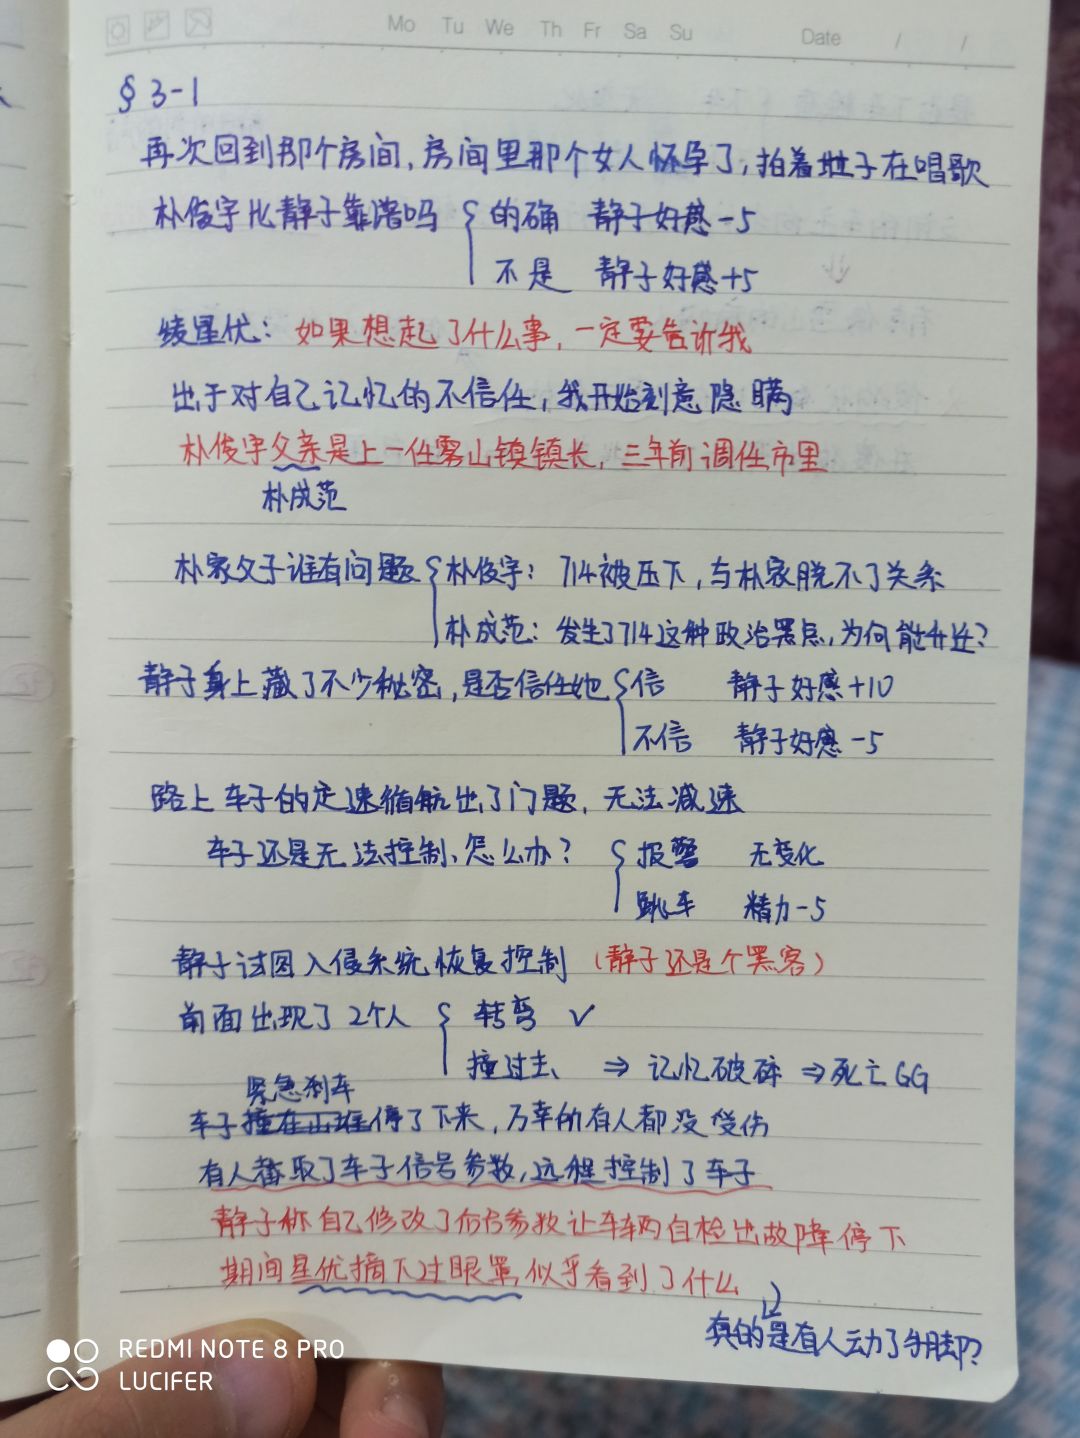 Mo Tu We Th Fr Sa Su Date / /
§ 3-1
再次回到那个房间,房间里那个女人怀孕了,拍着肚子在唱歌
朴俊宇比静子靠谱吗 { 的确 静子好感-5
不是 静子好感+5
绫星优: 如果想起了什么事,一定要告诉我
出于对自己记忆的不信任,我开始刻意隐瞒
朴俊宇父亲是上一任雾山镇镇长,三年前调任市里
朴成范
朴家父子谁有问题 { 朴俊宇: 714被压下,与朴家脱不了关系
朴成范: 发生了714这种政治黑点,为何能升迁?
静子身上藏了不少秘密,是否信任她 { 信 静子好感+10
不信 静子好感-5
路上车子的定速循航出了门题,无法减速
车子还是无法控制、怎么办? { 报警 无变化
跳车 精力-5
静子试图入侵系统恢复控制 (静子还是个黑客)
前面出现了2个人 { 转弯 ✓
撞过去 ⇒ 记忆破碎 ⇒ 死亡GG
紧急刹车
车子撞在山崖停了下来,万幸所有人都没受伤
有人截取了车子信号参数,远程控制了车子
静子称自己修改了信号参数让车辆自检出故障停下
期间星优摘下过眼罩,似乎看到了什么
真的是有人动了手脚?
REDMI NOTE 8 PRO
LUCIFER